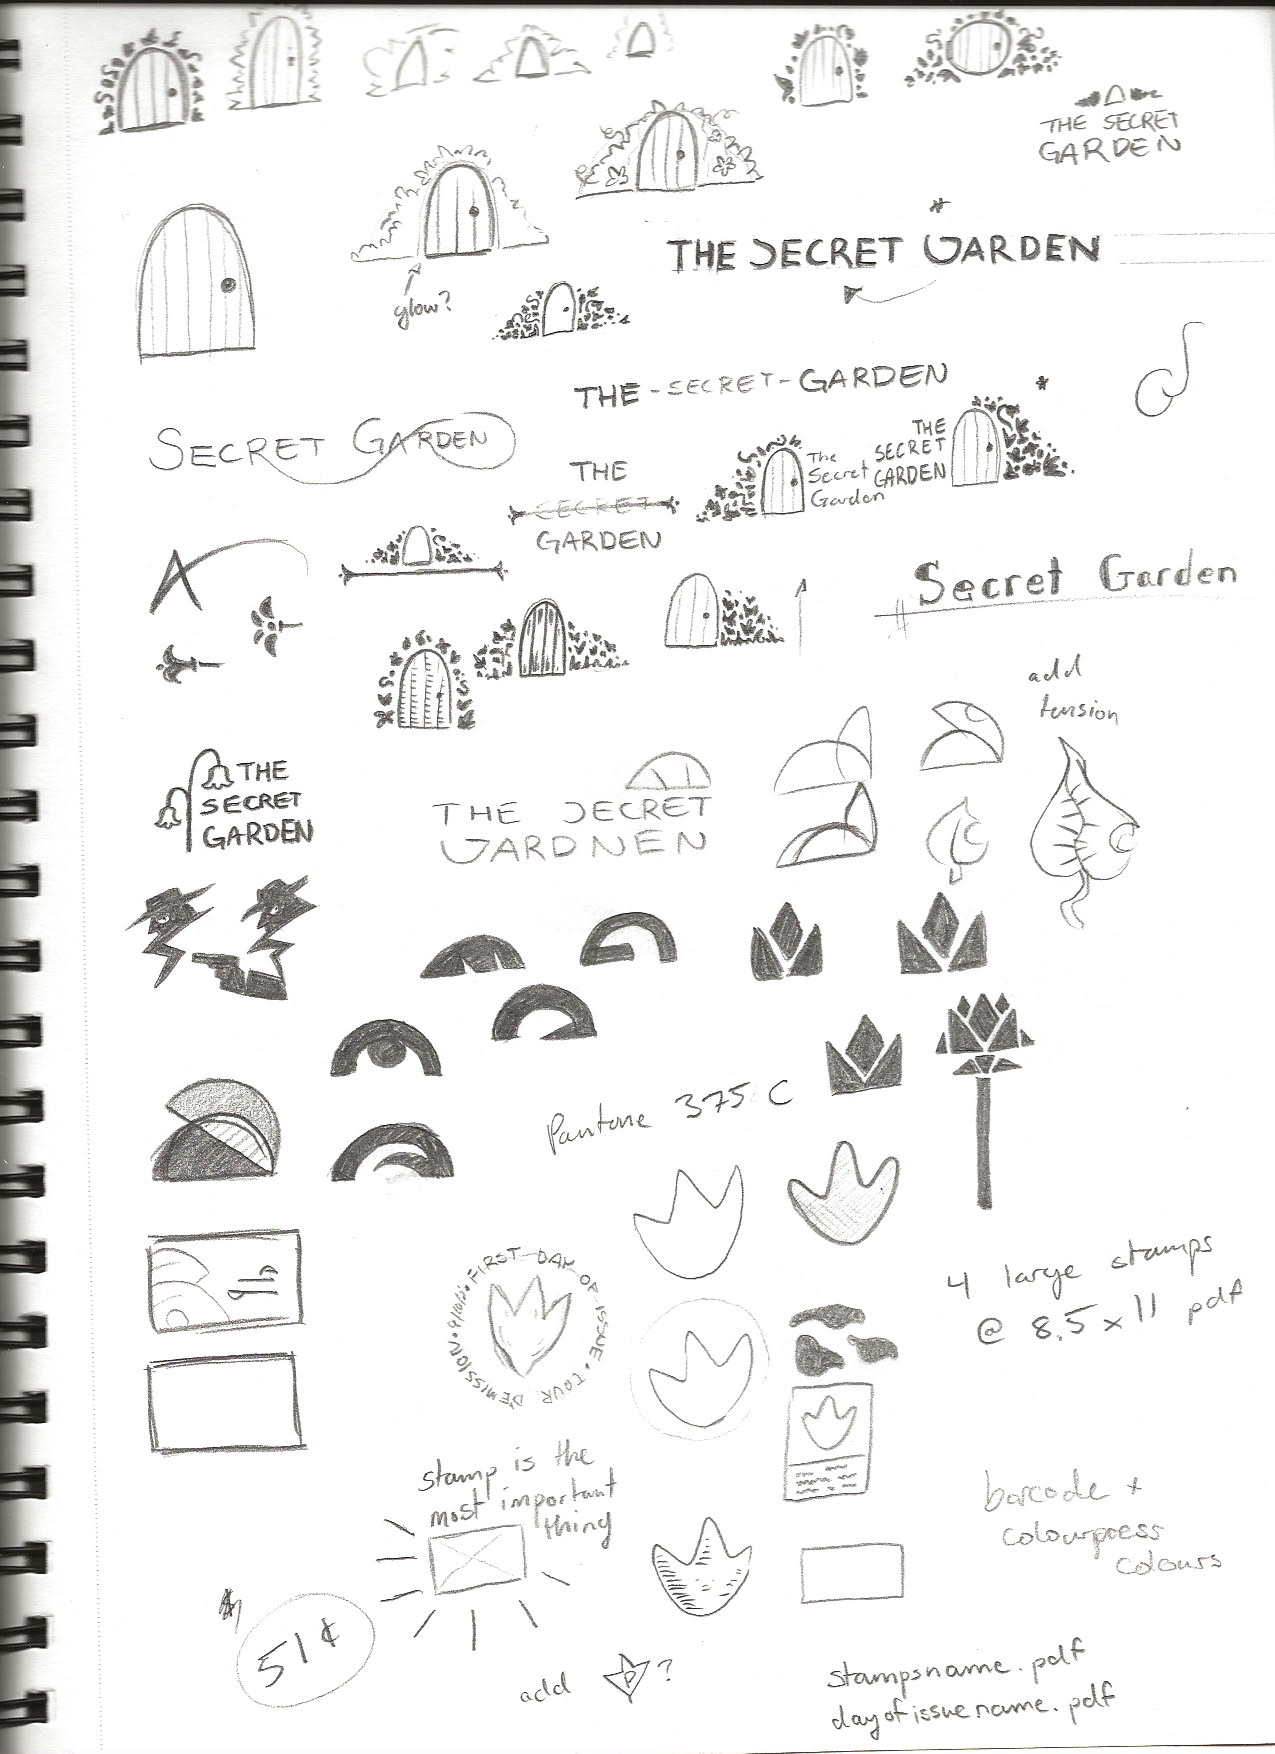 THE SECRET
GARDEN
THE SECRET GARDEN
glow?
THE-SECRET-GARDEN
SECRET GARDEN
THE
SECRET
GARDEN
The
Secret
Garden
THE
SECRET
GARDEN
Secret Garden
add
tension
THE
SECRET
GARDEN
THE SECRET
GARDNEN
Pantone 375 C
FIRST DAY OF ISSUE • JOUR DEMISSION •
4 large stamps
@ 8.5 x 11 pdf
stamp is the
most important
thing
barcode +
colourpress
colours
51¢
add P ?
stampsname.pdf
dayofissuename.pdf